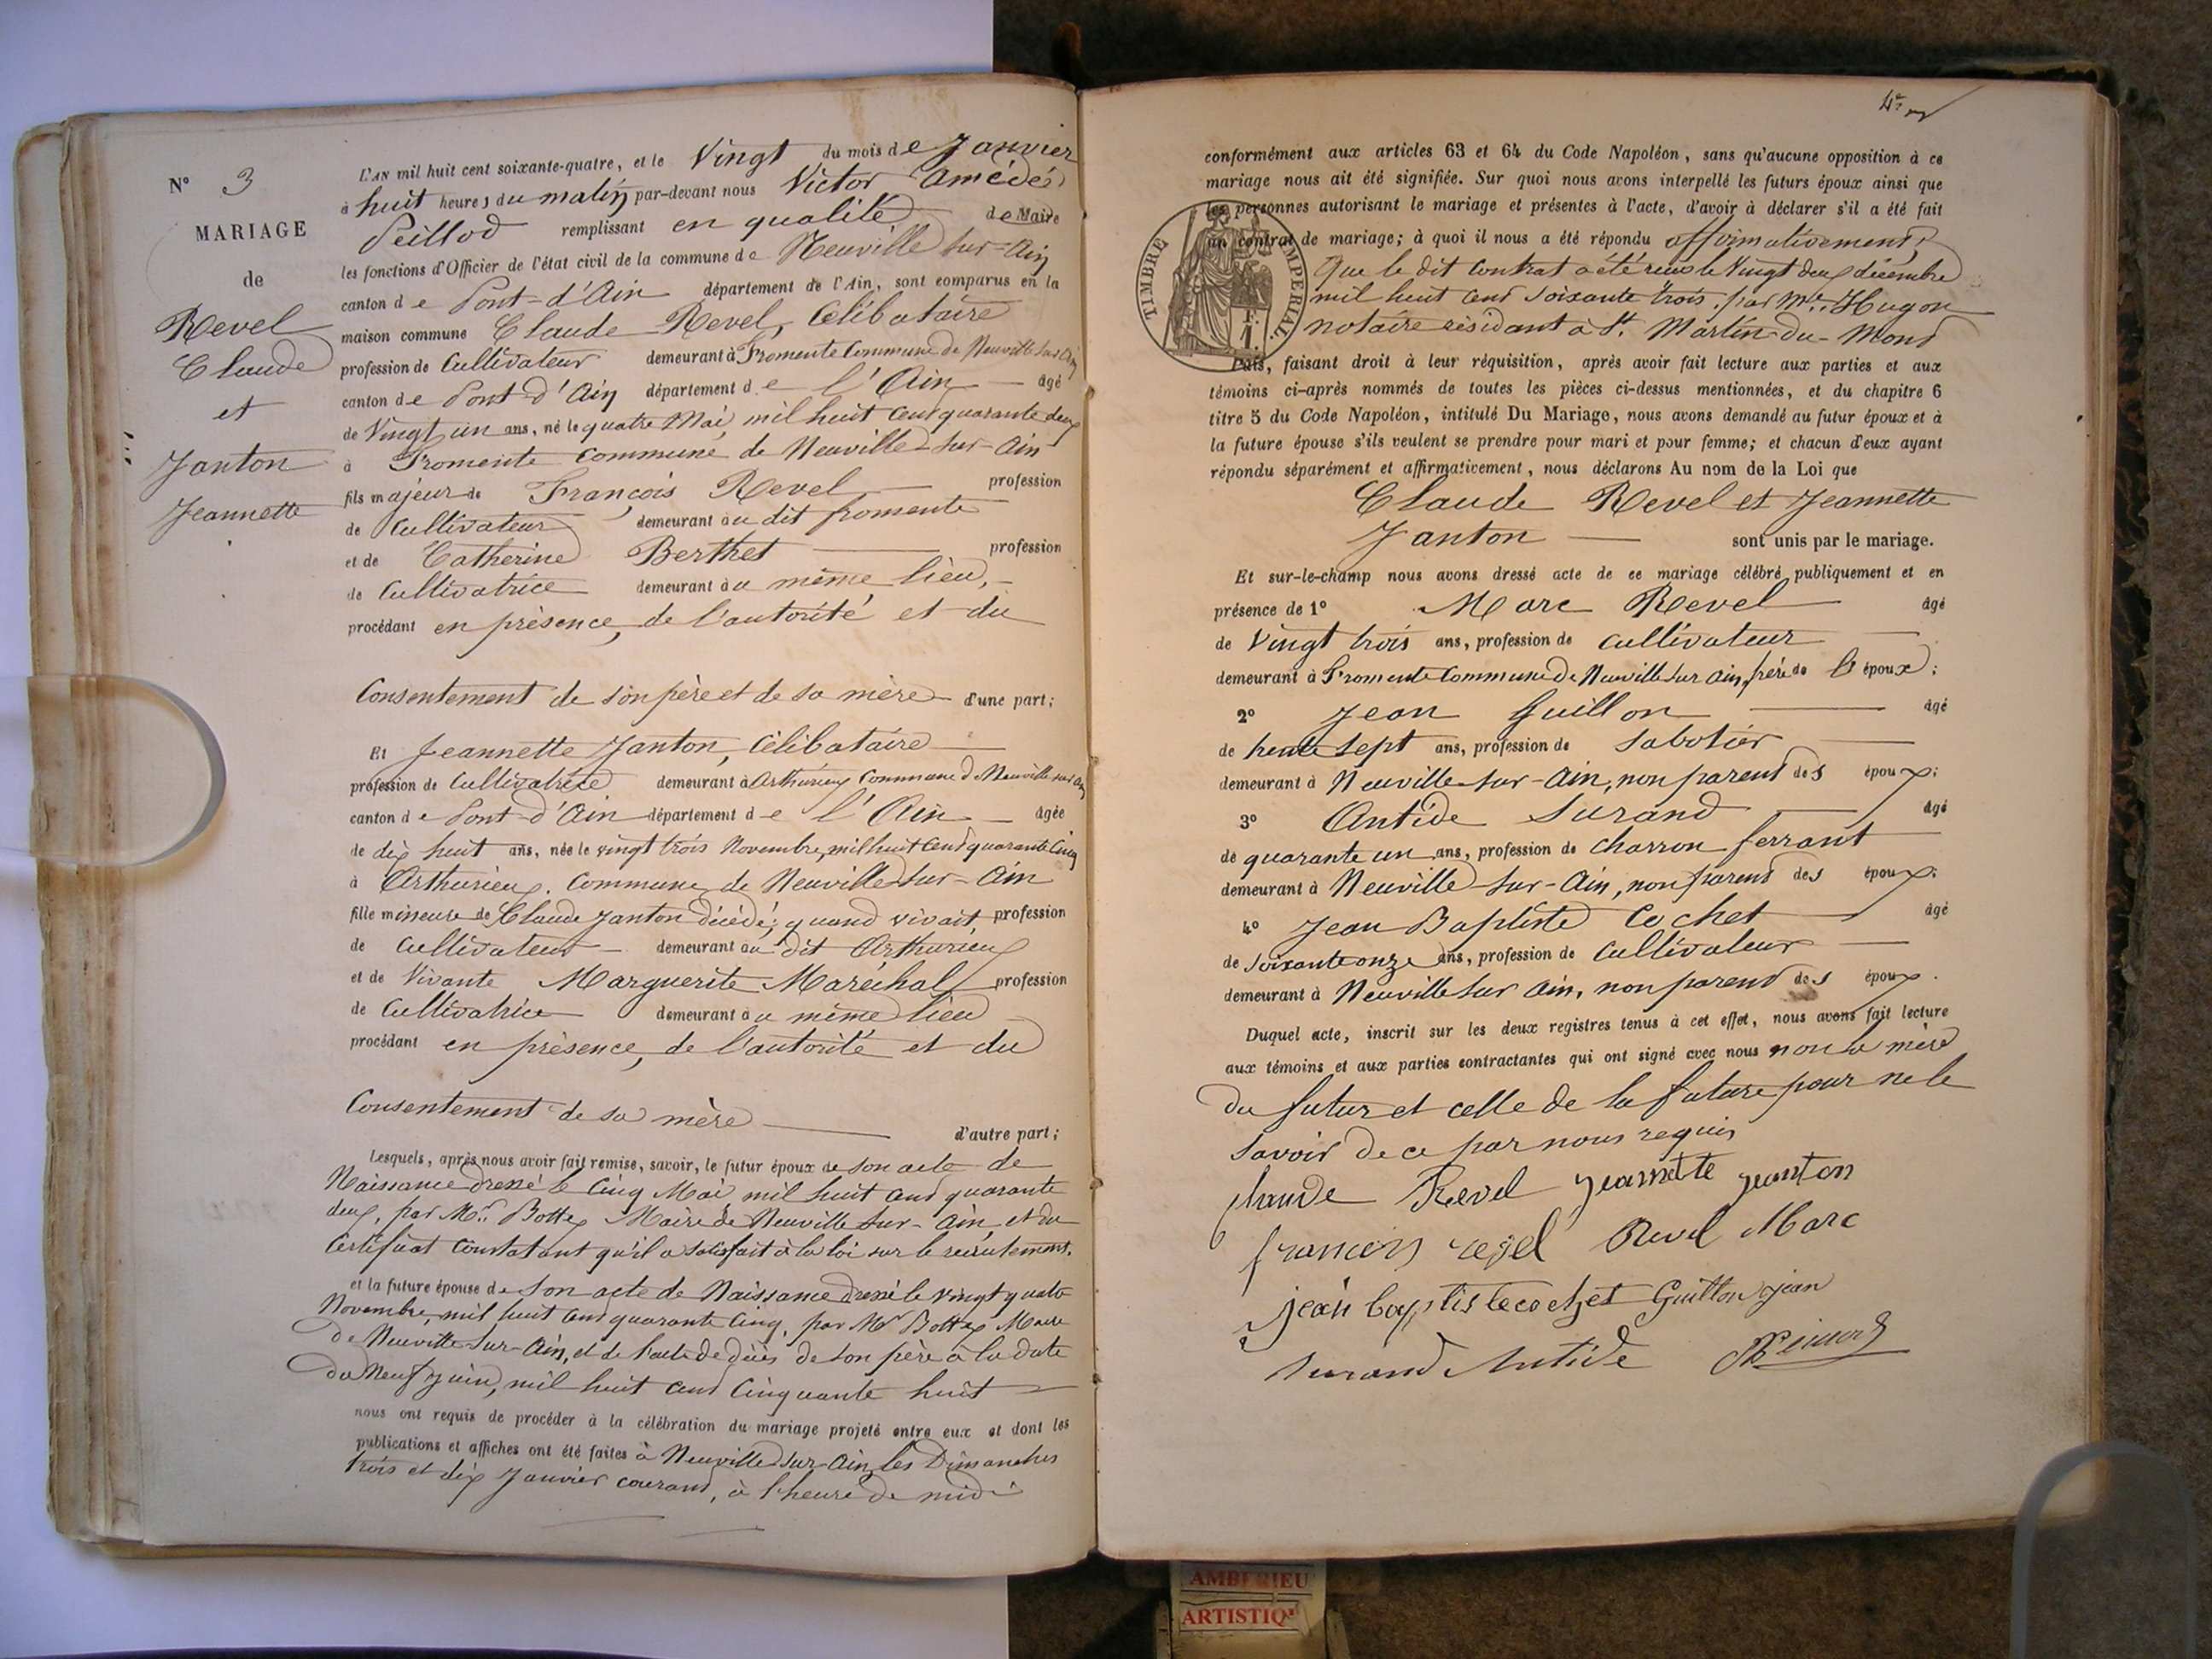 N° 3
MARIAGE
de
Revel
Claude
et
Janton
Jeannette
L'AN mil huit cent soixante-quatre, et le Vingt du mois de Janvier
à huit heures du matin par-devant nous Victor Amédée
Peillod remplissant en qualité de Maire
les fonctions d'Officier de l'état civil de la commune de Neuville sur-Ain
canton de Pont-d'Ain département de l'Ain, sont comparus en la
maison commune Claude Revel, Célibataire
profession de Cultivateur demeurant à Fromente Commune de Neuville sur Ain
canton de Pont d'Ain département de l'Ain âgé
de Vingt un ans, né le quatre Mai mil huit cent quarante deux
à Fromente commune de Neuville-sur-Ain
fils majeur de François Revel profession
de Cultivateur demeurant au dit fromente
et de Catherine Berthet profession
de Cultivatrice demeurant au même lieu,
procédant en présence, de l'autorité et du
Consentement de son père et de sa mère d'une part;
Et Jeannette Janton, Célibataire
profession de Cultivatrice demeurant à Arthurieux Commune de Neuville sur Ain
canton de Pont-d'Ain département de l'Ain âgée
de dix huit ans, née le vingt trois Novembre, mil huit cent quarante Cinq
à Arthurieux. Commune de Neuville-sur-Ain
fille mineure de Claude Janton décédé; quand vivait profession
de Cultivateur demeurant au dit Arthurieux
et de Vivante Marguerite Maréchal profession
de Cultivatrice demeurant au même lieu
procédant en présence, de l'autorité et du
Consentement de sa mère d'autre part;
Lesquels, après nous avoir fait remise, savoir, le futur époux de son acte de
Naissance dressé le Cinq Mai mil huit cent quarante
deux, par Mr. Bottex Maire de Neuville sur-Ain, et du
Certificat Constatant qu'il a satisfait à la loi sur le recrutement.
et la future épouse de son acte de Naissance dressé le vingt quatre
Novembre, mil huit cent quarante Cinq, par Mr Bottex Maire
de Neuville-sur-Ain, et de l'acte de décès de son père à la date
du Neuf juin, mil huit cent Cinquante huit
nous ont requis de procéder à la célébration du mariage projeté entre eux et dont les
publications et affiches ont été faites à Neuville sur-Ain, les Dimanches
trois et dix Janvier courant, à l'heure de midi
conformément aux articles 63 et 64 du Code Napoléon, sans qu'aucune opposition à ce
mariage nous ait été signifiée. Sur quoi nous avons interpellé les futurs époux ainsi que
les personnes autorisant le mariage et présentes à l'acte, d'avoir à déclarer s'il a été fait
un contrat de mariage; à quoi il nous a été répondu affirmativement,
Que le dit Contrat a été reçu le Vingt deux décembre
mil huit cent soixante trois, par Me. Hugon
notaire résidant à St. Martin-du-Mont
TIMBRE IMPERIAL.
Puis, faisant droit à leur réquisition, après avoir fait lecture aux parties et aux
témoins ci-après nommés de toutes les pièces ci-dessus mentionnées, et du chapitre 6
titre 5 du Code Napoléon, intitulé Du Mariage, nous avons demandé au futur époux et à
la future épouse s'ils veulent se prendre pour mari et pour femme; et chacun d'eux ayant
répondu séparément et affirmativement, nous déclarons Au nom de la Loi que
Claude Revel et Jeannette
Janton sont unis par le mariage.
Et sur-le-champ nous avons dressé acte de ce mariage célébré publiquement et en
présence de 1° Marc Revel âgé
de Vingt trois ans, profession de cultivateur
demeurant à Fromente Commune de Neuville sur Ain, frère de l'époux;
2° Jean Guillon âgé
de trente sept ans, profession de Sabotier
demeurant à Neuville-sur-Ain, non parent des époux;
3° Antide Durand âgé
de quarante un ans, profession de Charron ferrant
demeurant à Neuville-sur-Ain, non parent des époux.
4° Jean Baptiste Cochet âgé
de soixante onze ans, profession de Cultivateur
demeurant à Neuville sur Ain, non parent des époux.
Duquel acte, inscrit sur les deux registres tenus à cet effet, nous avons fait lecture
aux témoins et aux parties contractantes qui ont signé avec nous non la mère
du futur et celle de la future pour ne le
savoir de ce par nous requis
Claude Revel Jeannette Janton
francois revel Revel Marc
jean baptiste cochet Guillon jean
Durand Antide
AMBERIEU
ARTISTIQ